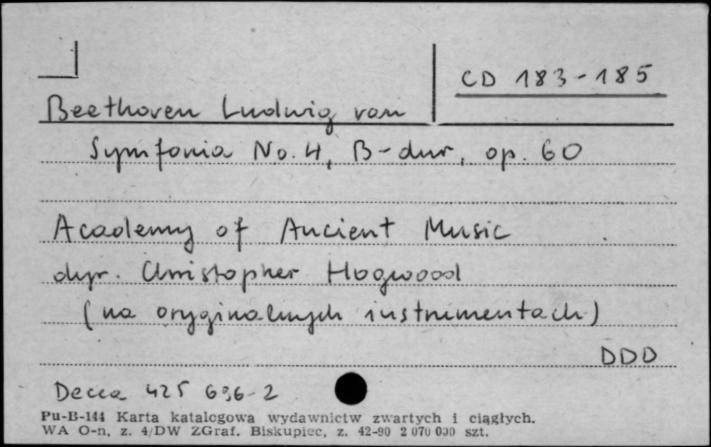 CD 183-185
Beethoven Ludwig van
Symfonia No. 4, B-dur, op. 60
Academy of Ancient Music
dyr. Christopher Hogwood
(na oryginalnych instrumentach)
DDD
Decca 425 696-2
Pu-B-144 Karta katalogowa wydawnictw zwartych i ciągłych.
WA O-n, z. 4/DW ZGraf. Biskupiec, z. 42-90 2 070 000 szt.